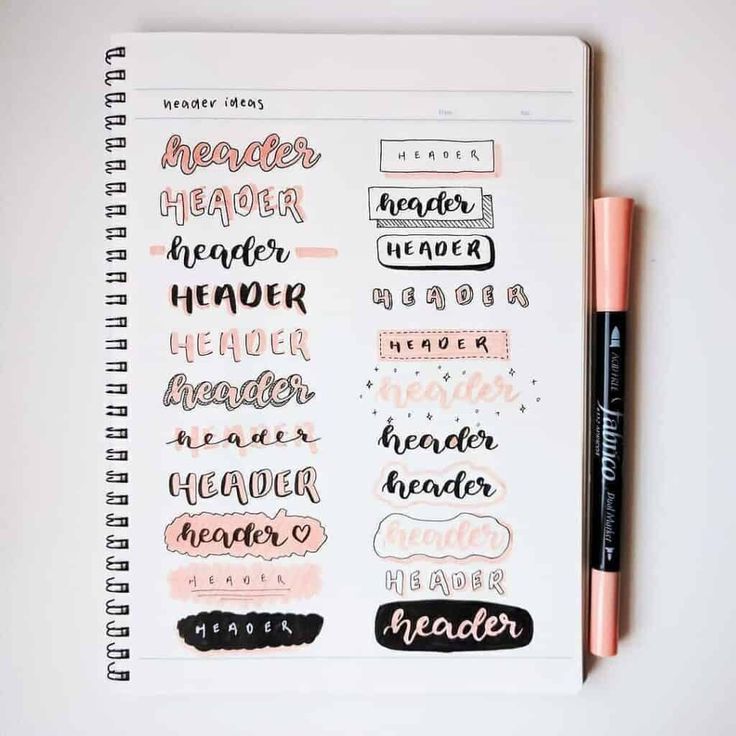 header ideas
header
HEADER
header
HEADER
HEADER
header
header
HEADER
header
HEADER
HEADER
HEADER
header
HEADER
HEADER
HEADER
header
header
header
header
HEADER
header
ACID FREE
fabrico
Dual Marker